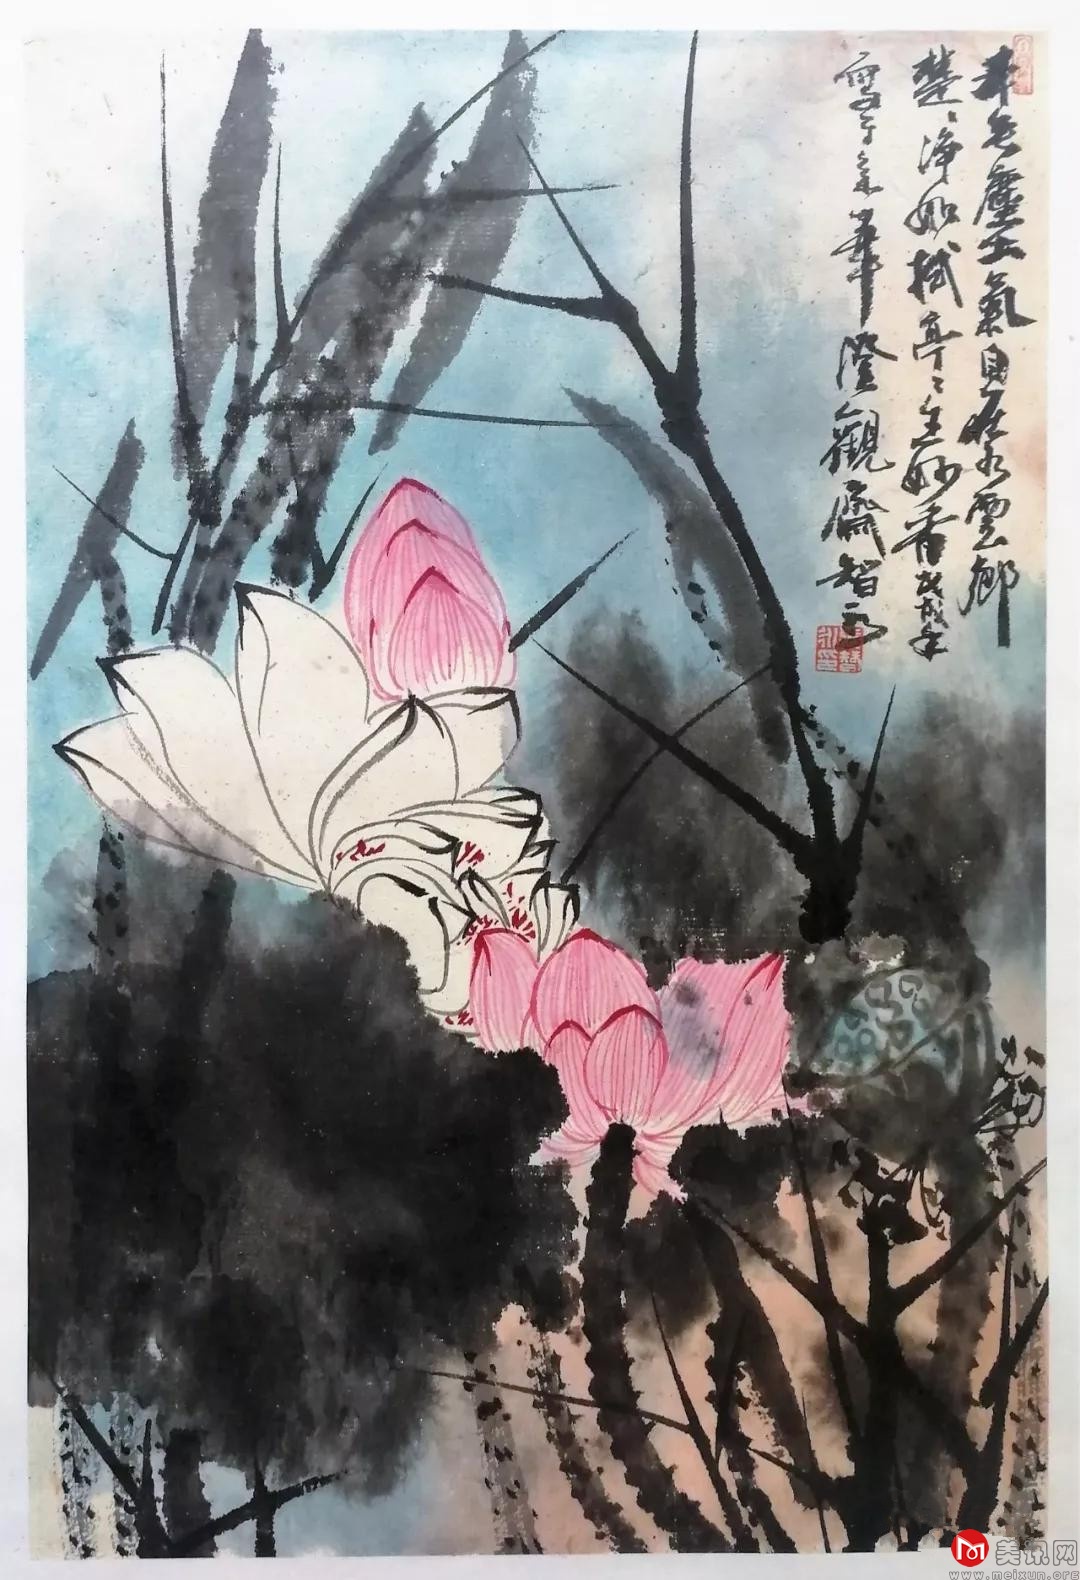 本無塵土氣自在水雲鄉
楚〻淨如拭亭〻生妙香戊戌年
寫于京華澄觀齋智永
美讯网
www.meixun.org